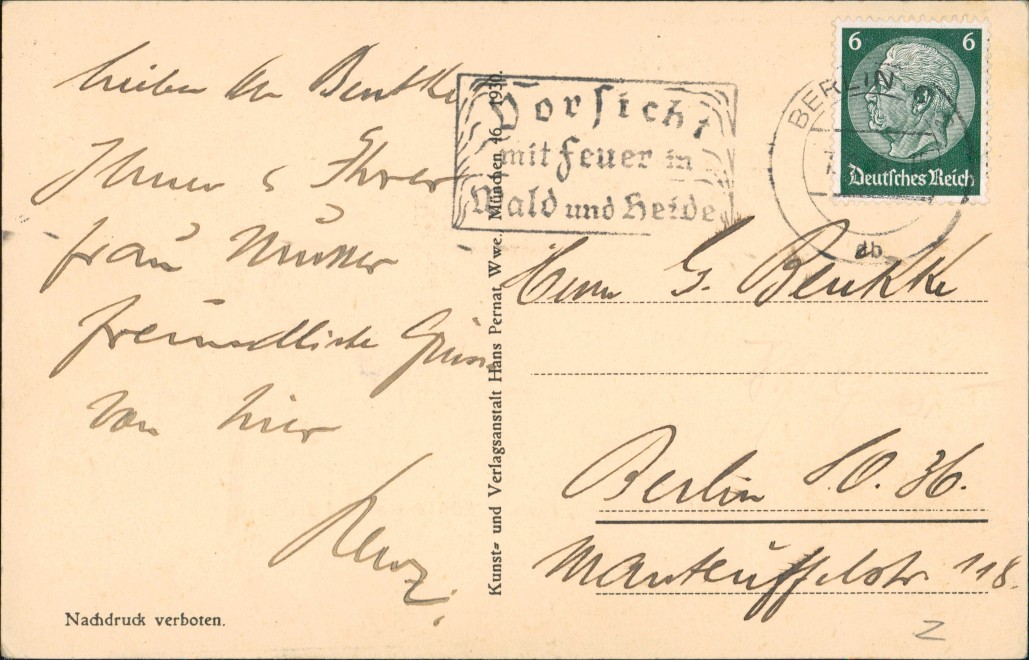 lieber Hr Benthke
Ihnen u Ihrer
Frau Mutter
freundliche Grüsse
von hier
Renz.
Nachdruck verboten.
Kunst- und Verlagsanstalt Hans Pernat, Wwe., München 46 1930.
Vorsicht
mit Feuer in
Wald und Heide
BERLIN
db
6 6
Deutsches Reich
Herrn G. Benthke
Berlin S.O. 36.
Manteuffelstr. 118.
Z